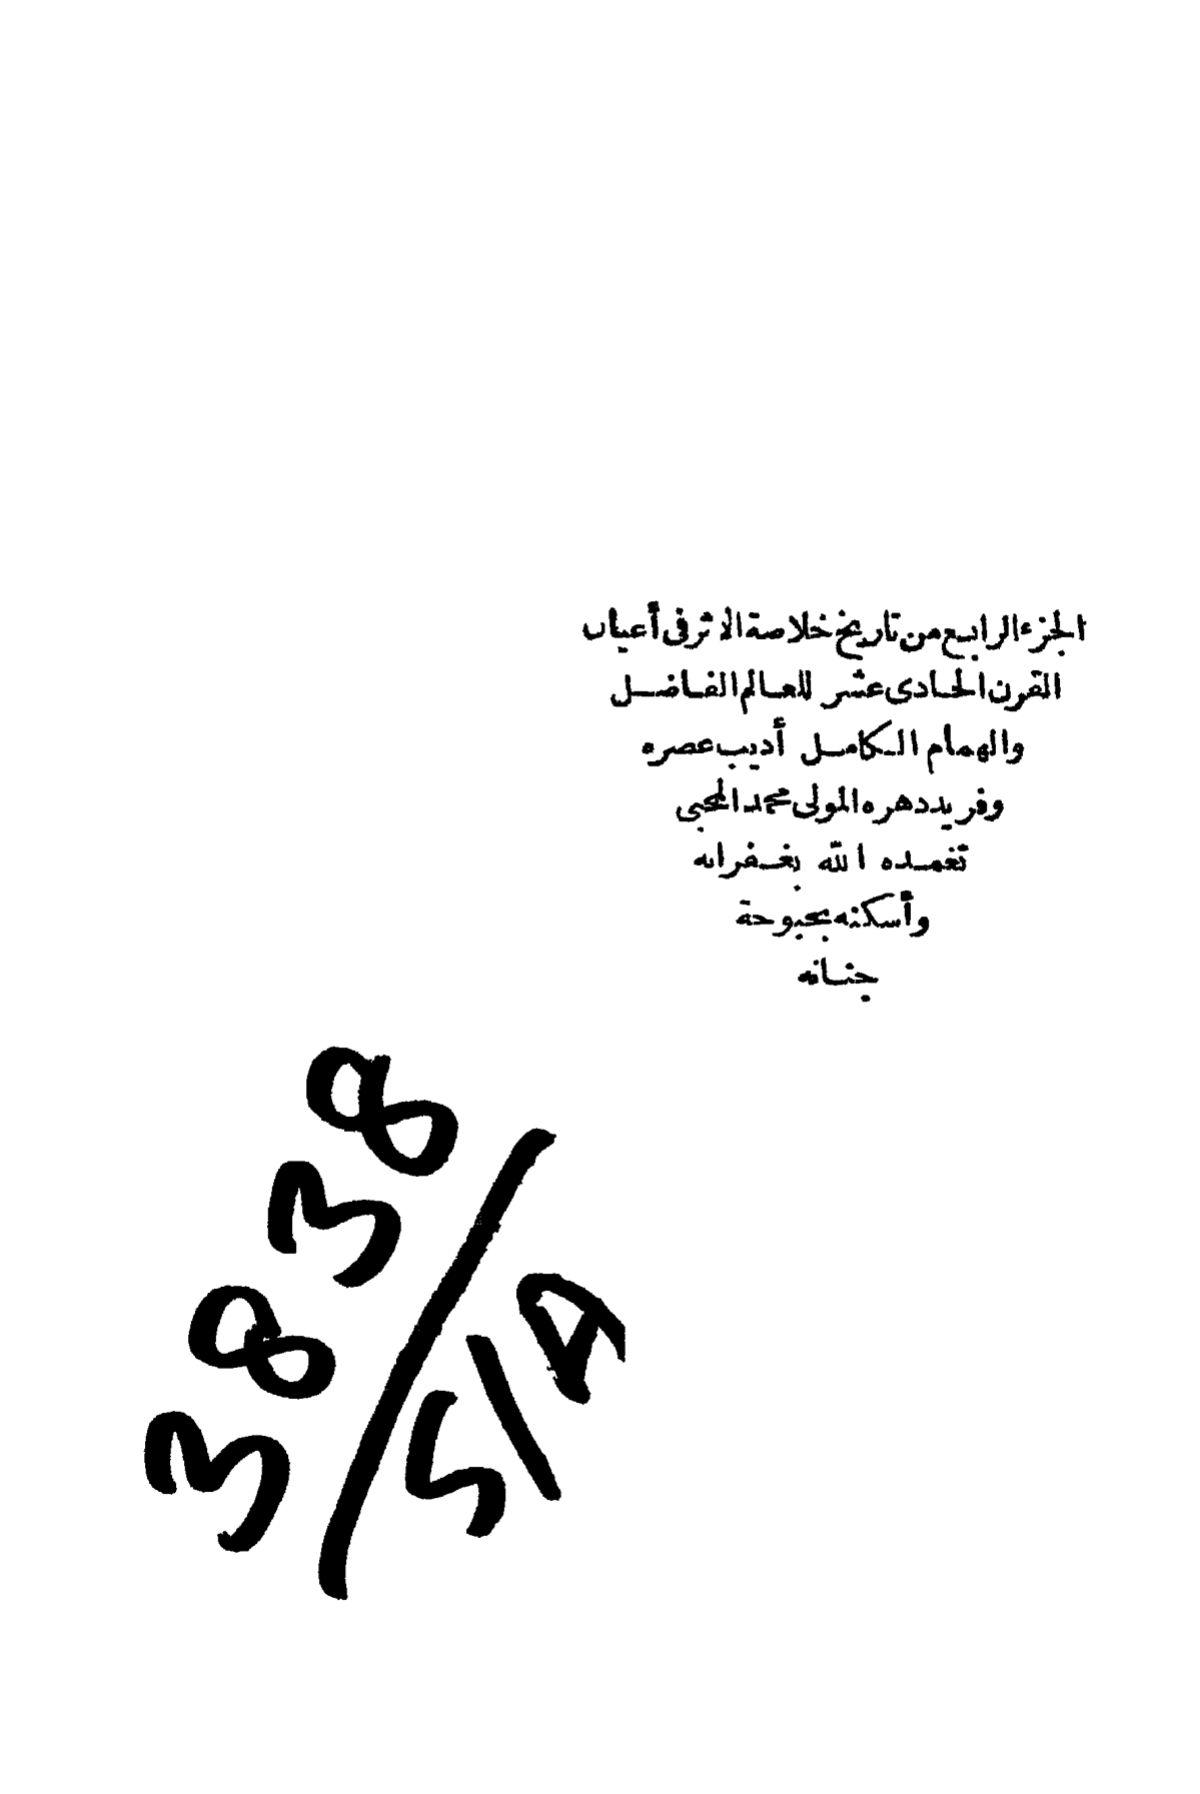 الجزء الرابع من تاريخ خلاصة الاثر فى أعيان
القرن الحادى عشر للعالم الفاضل
والهمام الكامل أديب عصره
وفريد دهره المولى محمد المحبى
تغمده الله بغفرانه
وأسكنه بحبوحة
جنانه
3838
51A